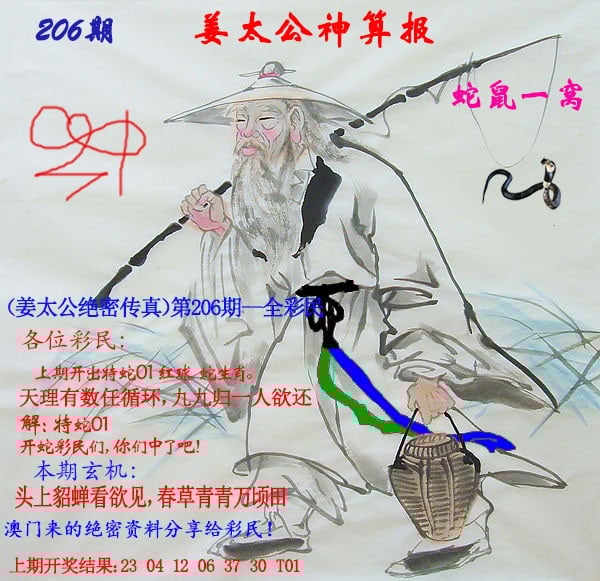 206期
姜太公神算报
蛇鼠一窝
(姜太公绝密传真)第206期—全彩民
各位彩民:
上期开出特蛇01 红球 蛇生肖。
天理有数任循环,九九归一人欲还
解: 特蛇01
开蛇彩民们,你们中了吧!
本期玄机:
头上貂蝉看欲见,春草青青万顷田
澳门来的绝密资料分享给彩民!
上期开奖结果: 23 04 12 06 37 30 T01